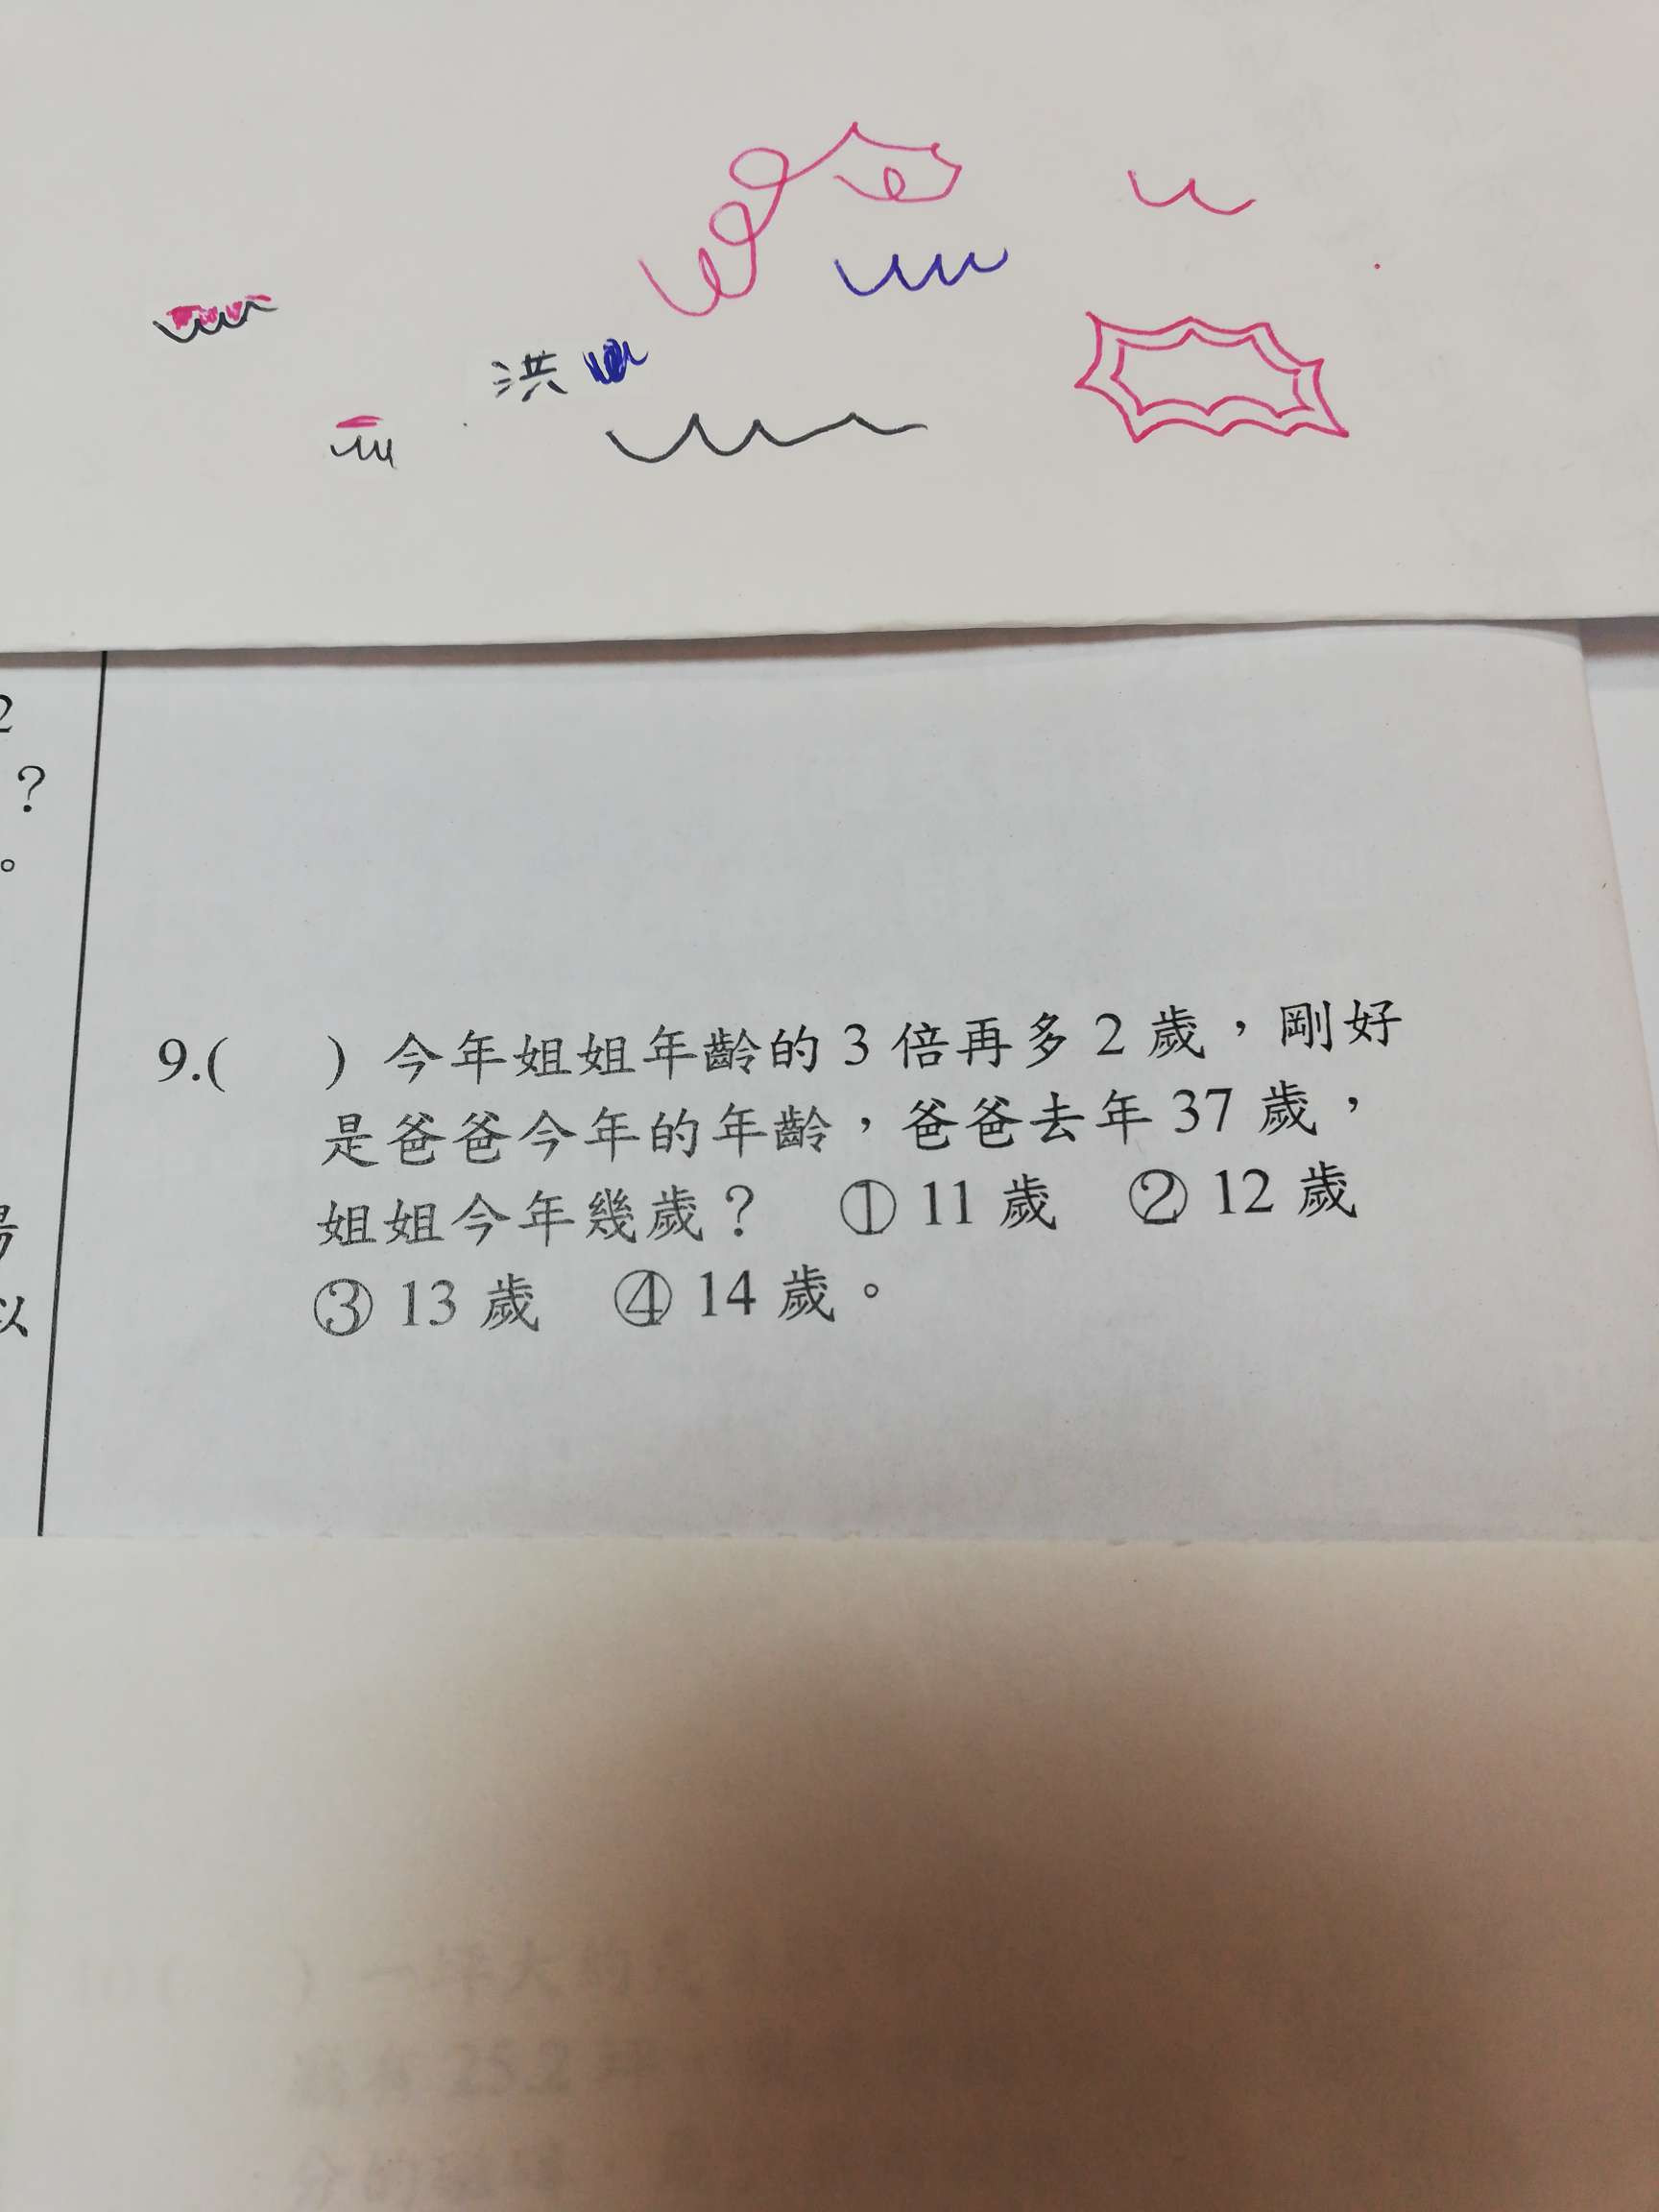 洪
2
？
。
以
9.(　　) 今年姐姐年齡的 3 倍再多 2 歲，剛好
是爸爸今年的年齡，爸爸去年 37 歲，
姐姐今年幾歲？　① 11 歲　② 12 歲
③ 13 歲　④ 14 歲。
) 一坪大約
25.2 坪